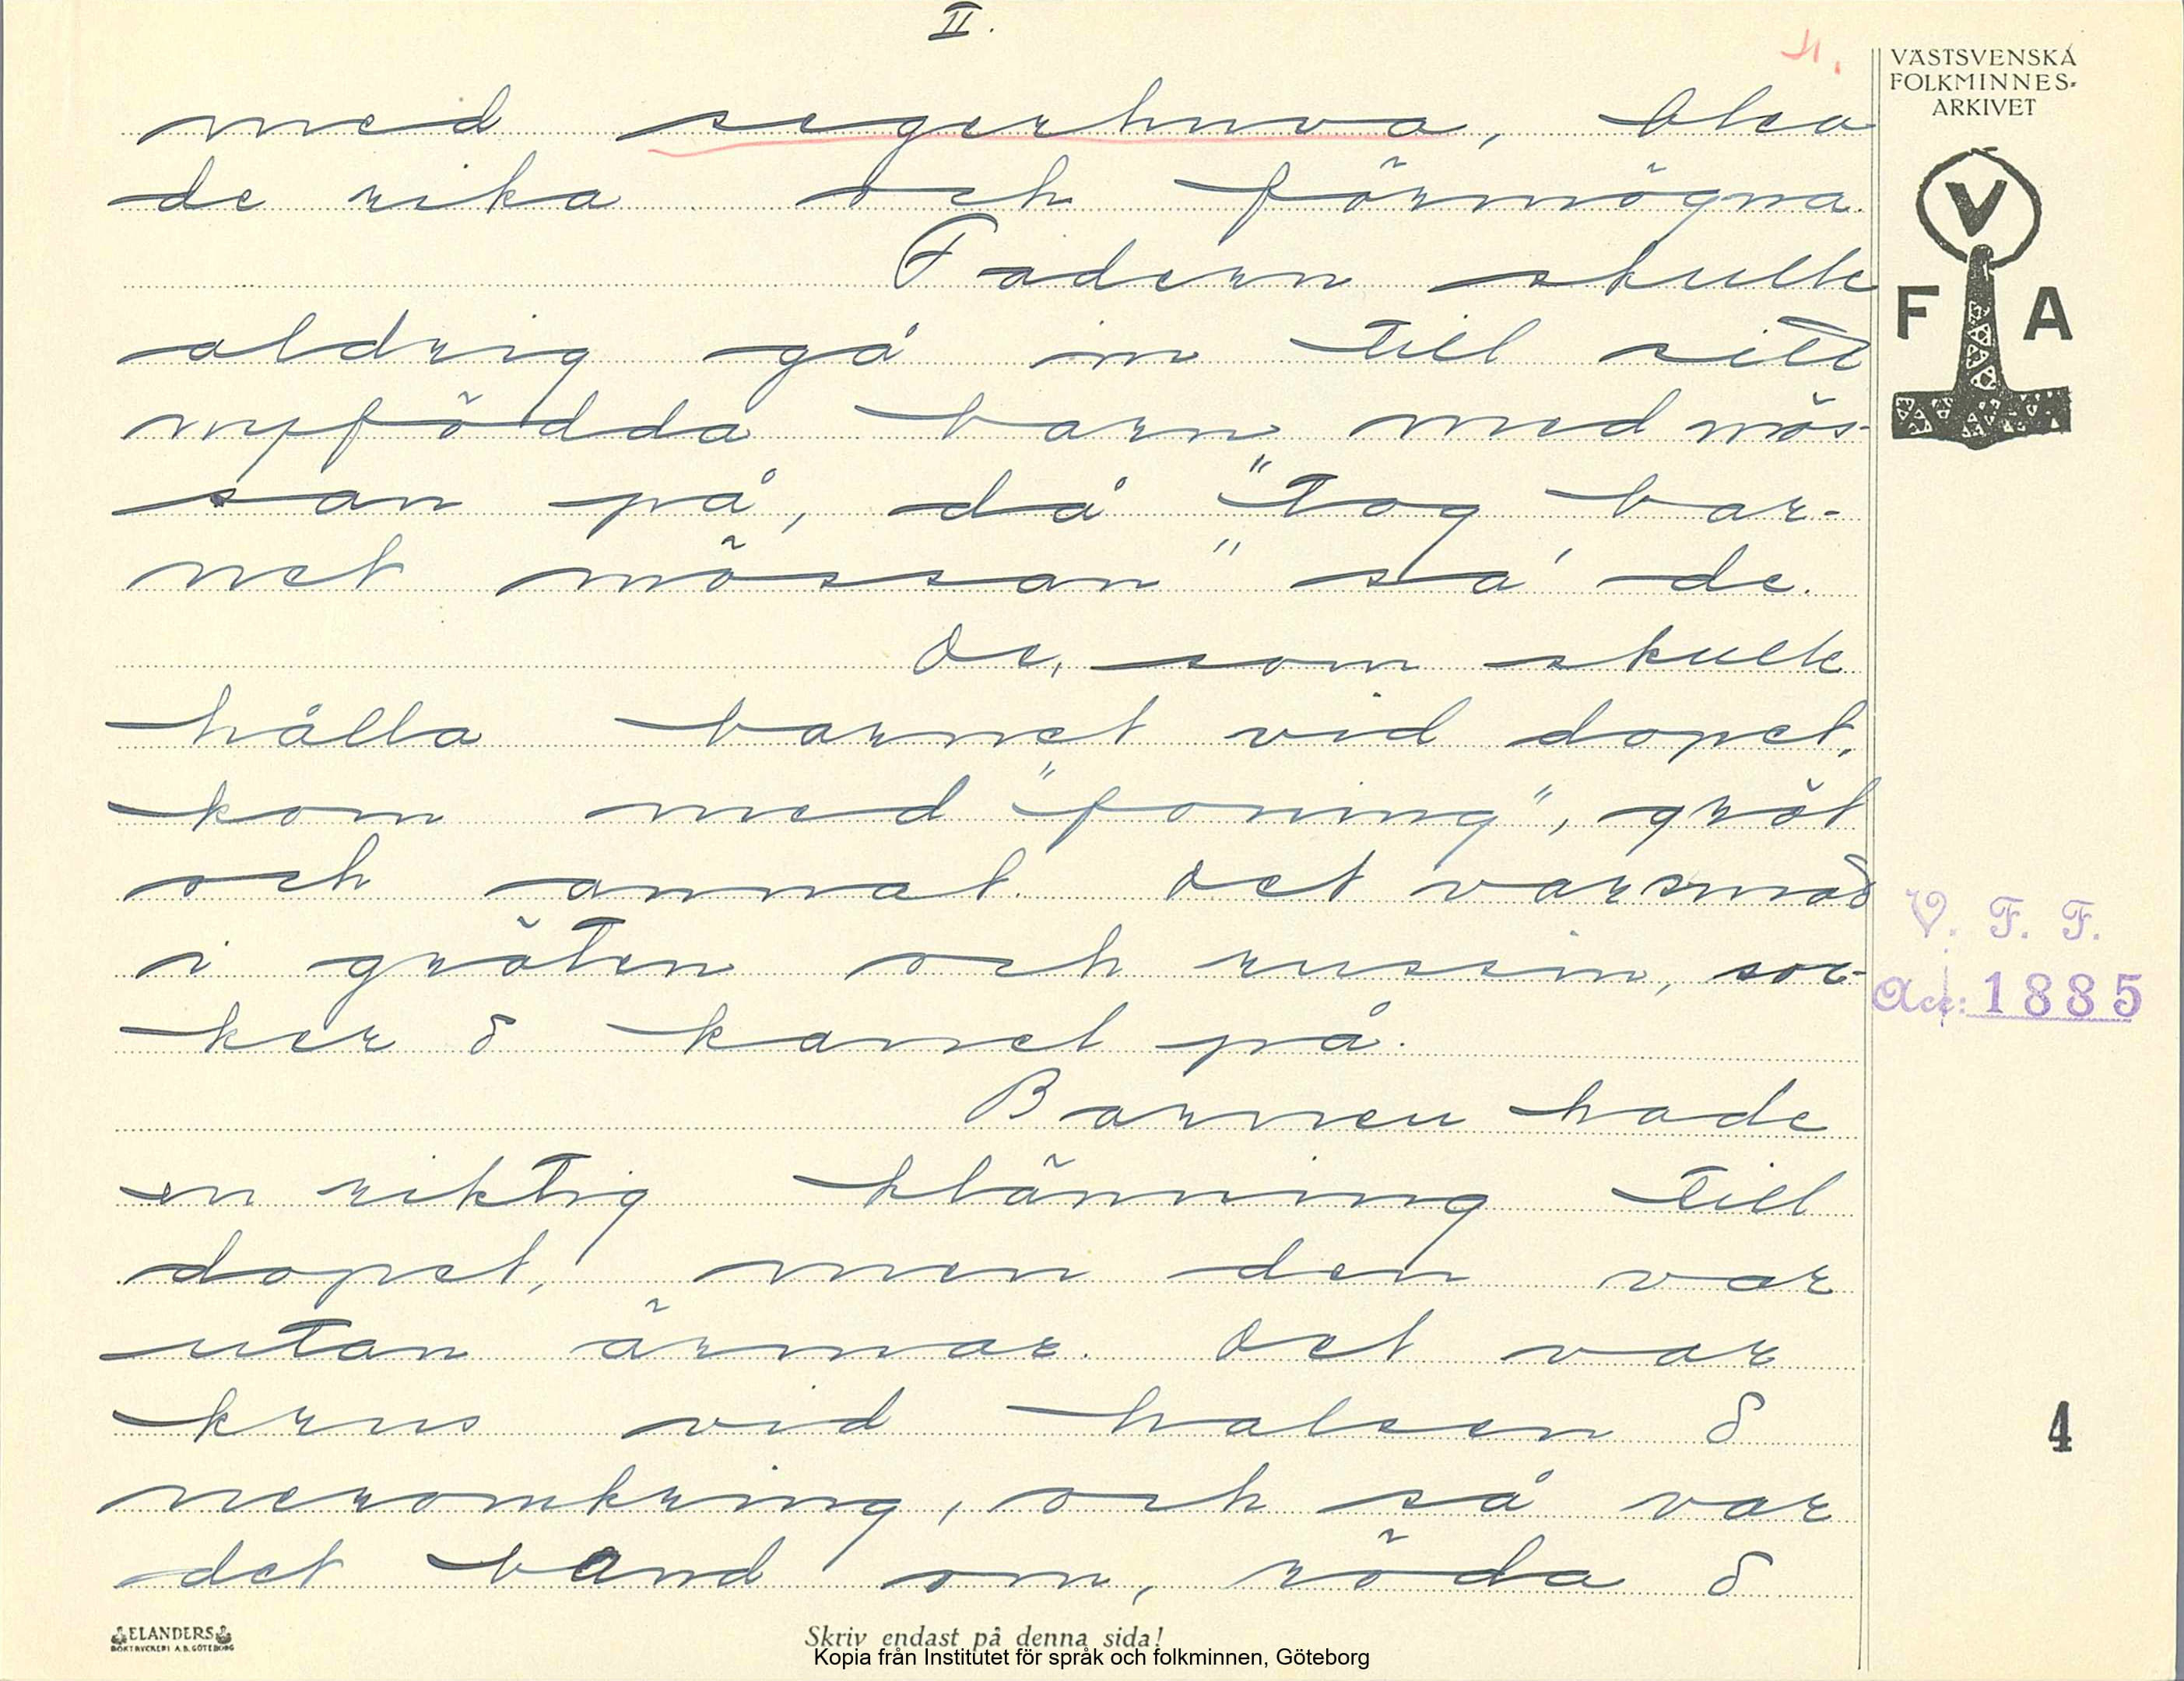 II.
4.
VÄSTSVENSKA
FOLKMINNES-
ARKIVET
V
F A
med segerhuva, blea
de rika och förmögna.
Fadern skulle
aldrig gå in till sitt
nyfödda barn med mös-
san på, då "tog bar-
net mössan" sa' de.
De, som skulle
hålla barnet vid dopet,
kom med "foning", gröt
och annat. Det var smör
i gröten och russin, soc-
ker & kanel på.
Barnen hade
en riktig klänning till
dopet, men den var
utan ärmar. Det var
krus vid halsen &
neromkring, och så var
det band om, röda &
V. F. F.
Acc: 1885
4
ELANDERS
BOKTRYCKERI A.B. GÖTEBORG
Skriv endast på denna sida!
Kopia från Institutet för språk och folkminnen, Göteborg